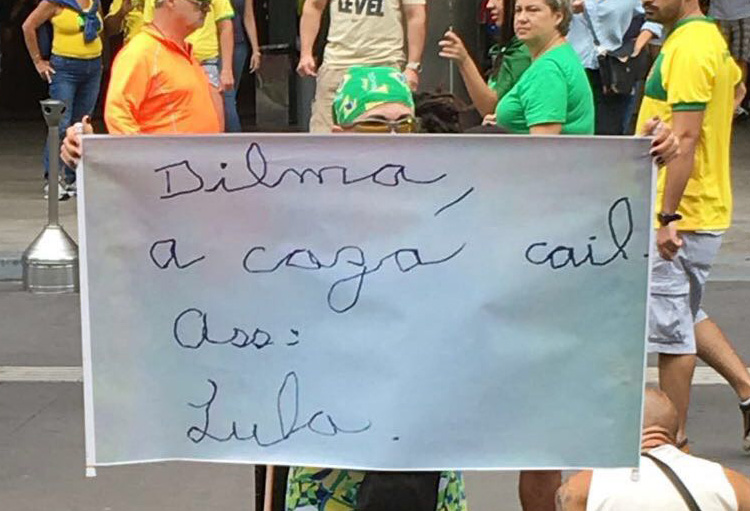 LEVEL
Dilma,
a cozá cail.
Ass:
Lula.